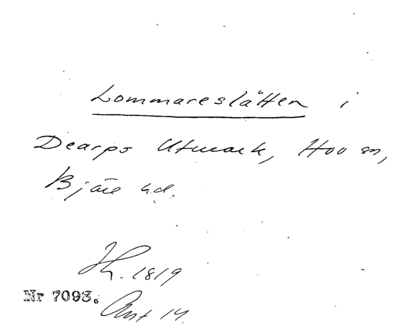 Lommareslätten i
Dearps Utmark, Hov sn,
Bjäre hd.
1819
Nr 7093. Ant 14.